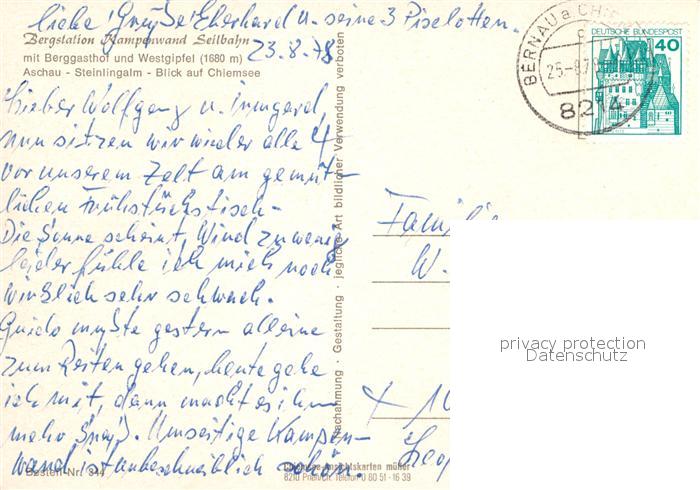 liebe Grüße Eberhard u. seine 3 Piselotten.
Bergstation Kampenwand Seilbahn
23.8.78
mit Berggasthof und Westgipfel (1680 m)
Aschau - Steinlingalm - Blick auf Chiemsee
Lieber Wolfgang u. Irmgard,
nun sitzen wir wieder alle 4
vor unserem Zelt am gemüt-
lichen Frühstückstisch -
Die Sonne scheint, Wind zu wenig
leider fühle ich mich noch
wirklich sehr schwach.
Guido mußte gestern alleine
zum Reiten gehen, heute gehe
ich mit, dann macht es ihm
mehr Spaß. Umseitige Kampen-
wand ist unbeschreiblich schön.
Bestell-Nr. 344
Chiemsee-Ansichtskarten müller
8210 Prien/Ch. Telefon 0 80 51 - 16 39
Nachahmung · Gestaltung · jegliche Art bildlicher Verwendung verboten
BERNAU a. CHIEMSEE
25.-8.78
8214
DEUTSCHE BUNDESPOST
40
Familie
W.
privacy protection
Datenschutz